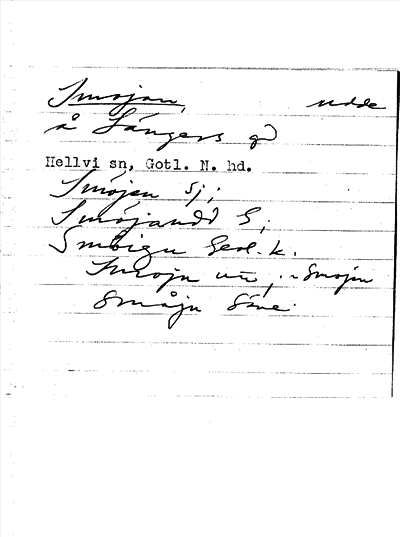 Smöjen, udde
å Sängers gd
Hellvi sn, Gotl. N. hd.
Smöjen Sj;
Smöjaudd G;
Smöigu Geol. k.
Smojn un, ~ Smojn
Småjn Säve.